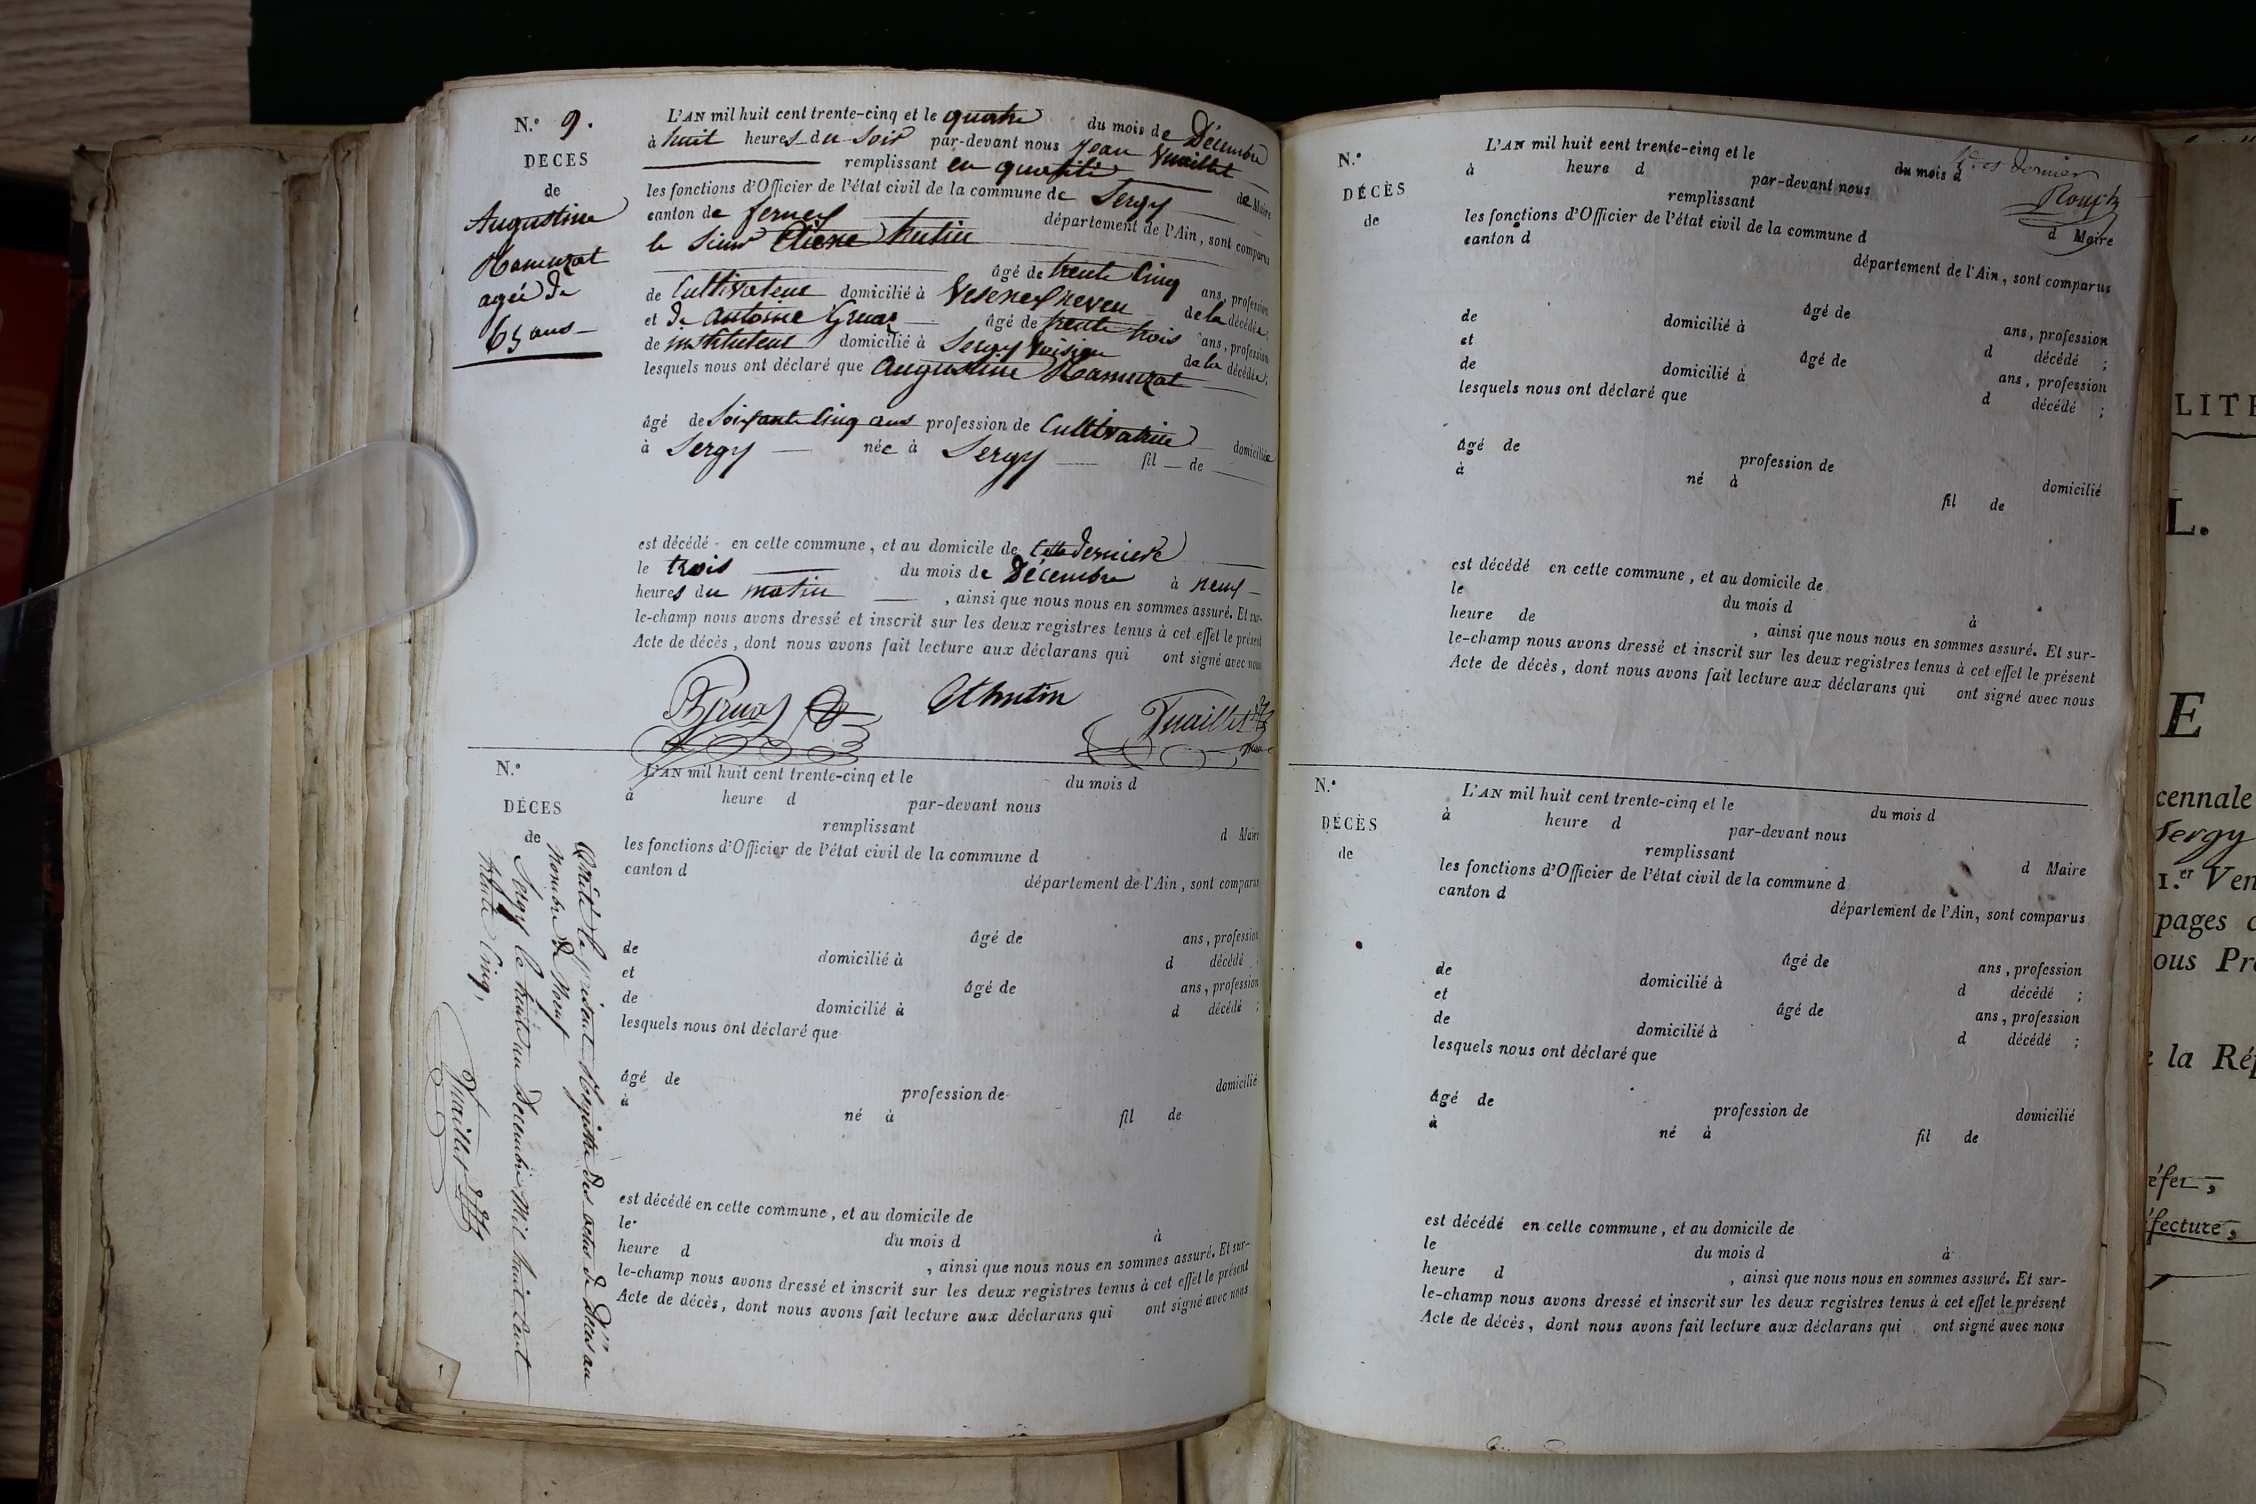 N.° 9.
DÉCÈS
de
Augustine
Ramuzat
agée de
65 ans
L'AN mil huit cent trente-cinq et le quatre du mois de Décembre
à huit heures du soir par-devant nous Jean Vuaillet
remplissant en qualité de Maire
les fonctions d'Officier de l'état civil de la commune de Sergy
canton de ferney département de l'Ain, sont comparus
le Sieur hutin
âgé de trente cinq ans, profession
de Cultivateur domicilié à Vesenex neveu de la décédée;
et de antoine Gruaz âgé de trente trois ans, profession
de instituteur domicilié à Sergy voisin de la décédée;
lesquels nous ont déclaré que augustine Ramuzat
âgé de Soixante Cinq ans profession de Cultivatrice domiciliée
à Sergy née à Sergy fil de
est décédé en cette commune, et au domicile de Cette derniere
le trois du mois de Décembre à neuf
heures du matin, ainsi que nous nous en sommes assuré. Et sur-
le-champ nous avons dressé et inscrit sur les deux registres tenus à cet effet le présent
Acte de décès, dont nous avons fait lecture aux déclarans qui ont signé avec nous
Gruaz hutin Vuaillet
N.°
DÉCÈS
de
L'AN mil huit cent trente-cinq et le du mois d
à heure d par-devant nous
remplissant d Maire
les fonctions d'Officier de l'état civil de la commune d
canton d département de l'Ain, sont comparus
âgé de ans, profession
de domicilié à d décédé ;
et âgé de ans, profession
de domicilié à d décédé ;
lesquels nous ont déclaré que
âgé de profession de domicilié
à né à fil de
est décédé en cette commune, et au domicile de
le du mois d à
heure d , ainsi que nous nous en sommes assuré. Et sur-
le-champ nous avons dressé et inscrit sur les deux registres tenus à cet effet le présent
Acte de décès, dont nous avons fait lecture aux déclarans qui ont signé avec nous
le présent Registre des actes de Décès au
Nombre de Neuf
Sergy le huit Decembre Mil huit Cent
trente Cinq,
Vuaillet
N.°
DÉCÈS
de
dernier
L'AN mil huit cent trente-cinq et le du mois d
à heure d par-devant nous
remplissant d Maire
les fonctions d'Officier de l'état civil de la commune d
canton d département de l'Ain, sont comparus
âgé de ans, profession
de domicilié à d décédé ;
et âgé de ans, profession
de domicilié à d décédé ;
lesquels nous ont déclaré que
âgé de profession de domicilié
à né à fil de
est décédé en cette commune, et au domicile de
le du mois d à
heure de , ainsi que nous nous en sommes assuré. Et sur-
le-champ nous avons dressé et inscrit sur les deux registres tenus à cet effet le présent
Acte de décès, dont nous avons fait lecture aux déclarans qui ont signé avec nous
N.°
DÉCÈS
de
L'AN mil huit cent trente-cinq et le du mois d
à heure d par-devant nous
remplissant d Maire
les fonctions d'Officier de l'état civil de la commune d
canton d département de l'Ain, sont comparus
âgé de ans, profession
de domicilié à d décédé ;
et âgé de ans, profession
de domicilié à d décédé ;
lesquels nous ont déclaré que
âgé de profession de domicilié
à né à fil de
est décédé en cette commune, et au domicile de
le du mois d à
heure d , ainsi que nous nous en sommes assuré. Et sur-
le-champ nous avons dressé et inscrit sur les deux registres tenus à cet effet le présent
Acte de décès, dont nous avons fait lecture aux déclarans qui ont signé avec nous
LITE
L.
E
cennale
Sergy
1.er Ven
pages
ous Pr
la Ré
fecture,